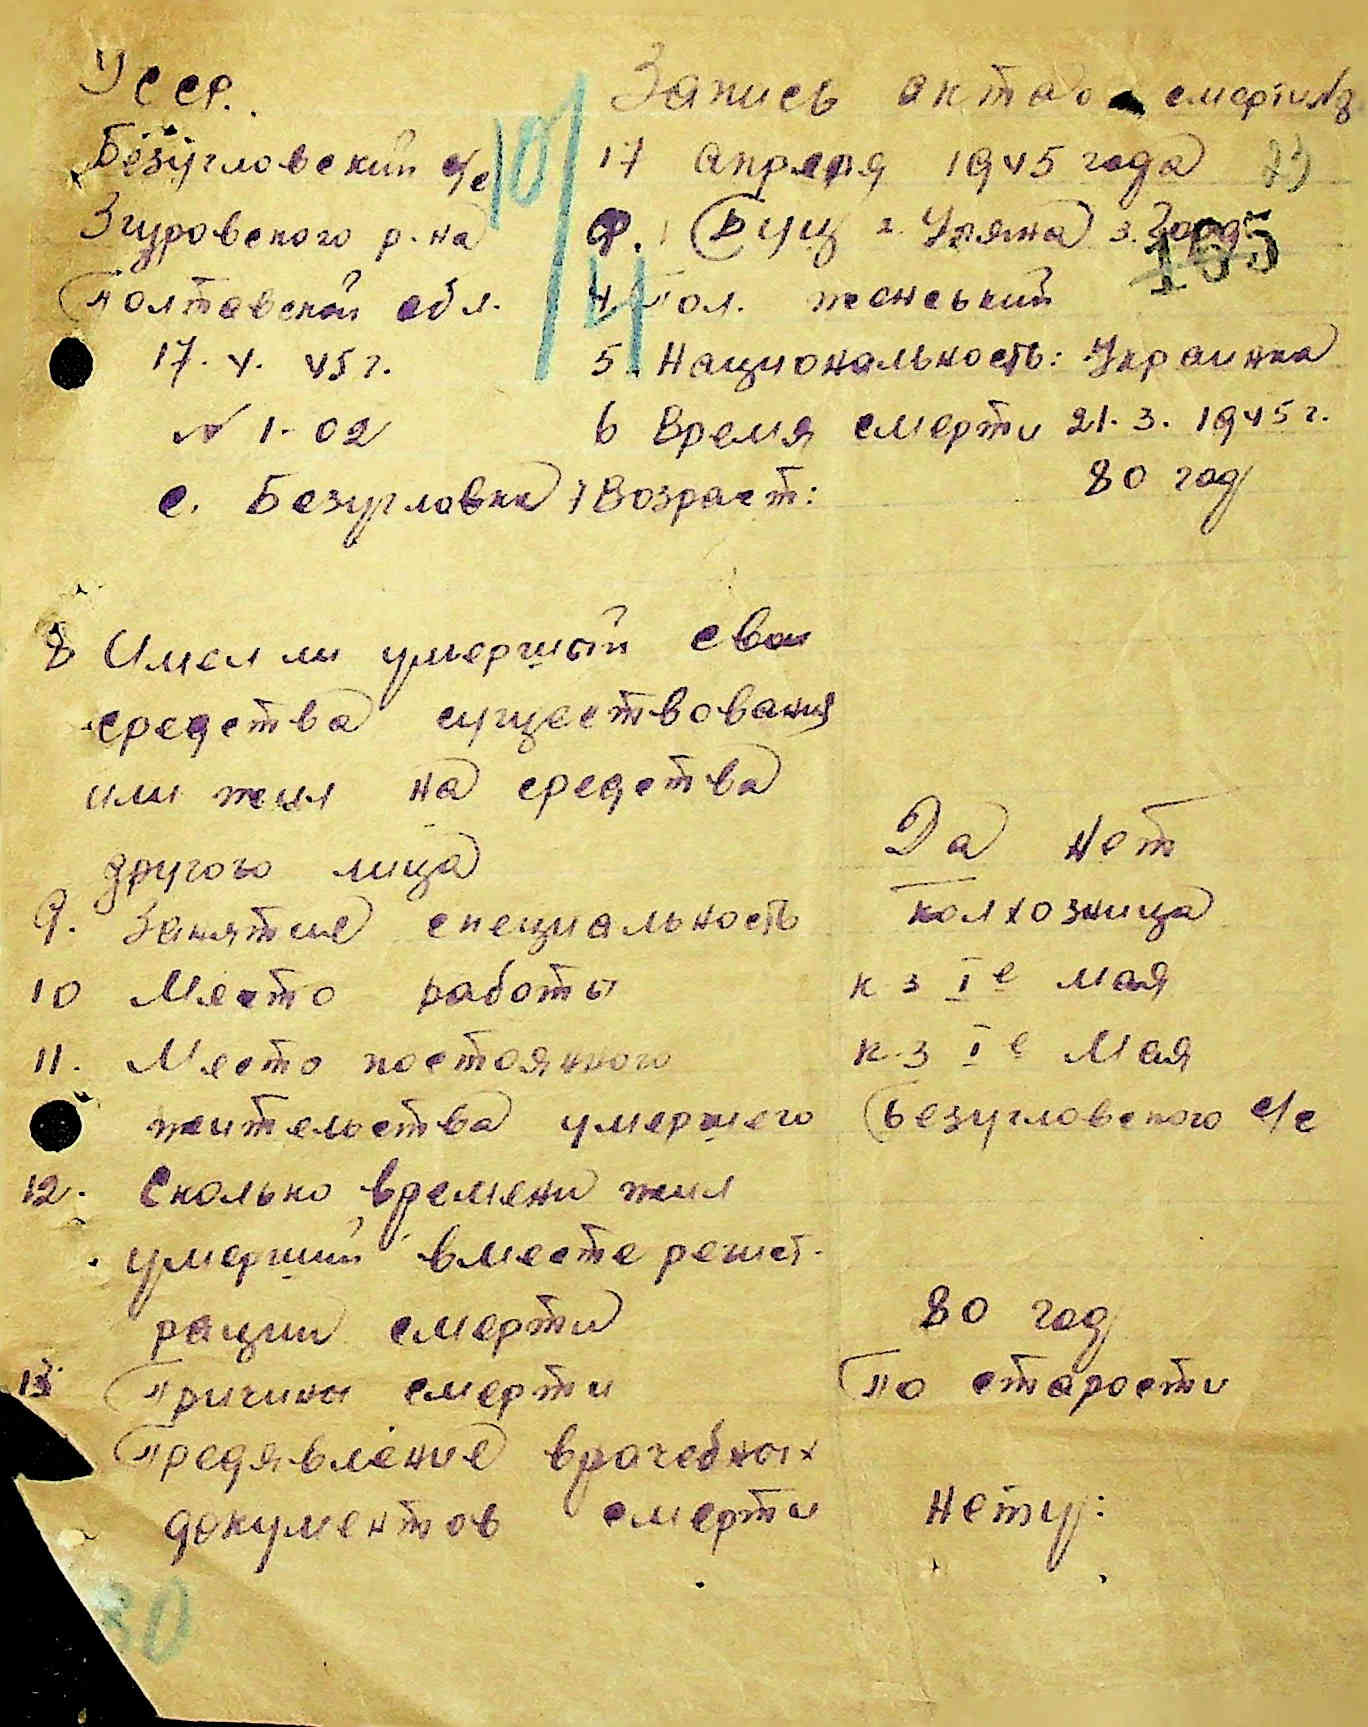 УССР.
Запись акта о смерти №
Безугловский с/с
17 апреля 1945 года
Згуровского р-на
Ф. Буц Уляна З.
165
Полтавской обл.
4 Пол. женський
17. 4. 45 г.
5. Национальность: Украинка
№ 1-02
6 Время смерти 21.3. 1945 г.
с. Безугловка 7 Возраст: 80 год
8 Имел ли умерший свои
средства существования
или жил на средства
другого лица Да нет
9. Занятие специальность колхозница
10 Место работы к з Iе мая
11. Место постоянного к.з Iе Мая
жительства умершего Безугловского с/с
12. Сколько времени жил
умерший в месте регист-
рации смерти 80 год
13 Причины смерти По старости
Предявление врачебных
документов смерти нету:
30
10/4